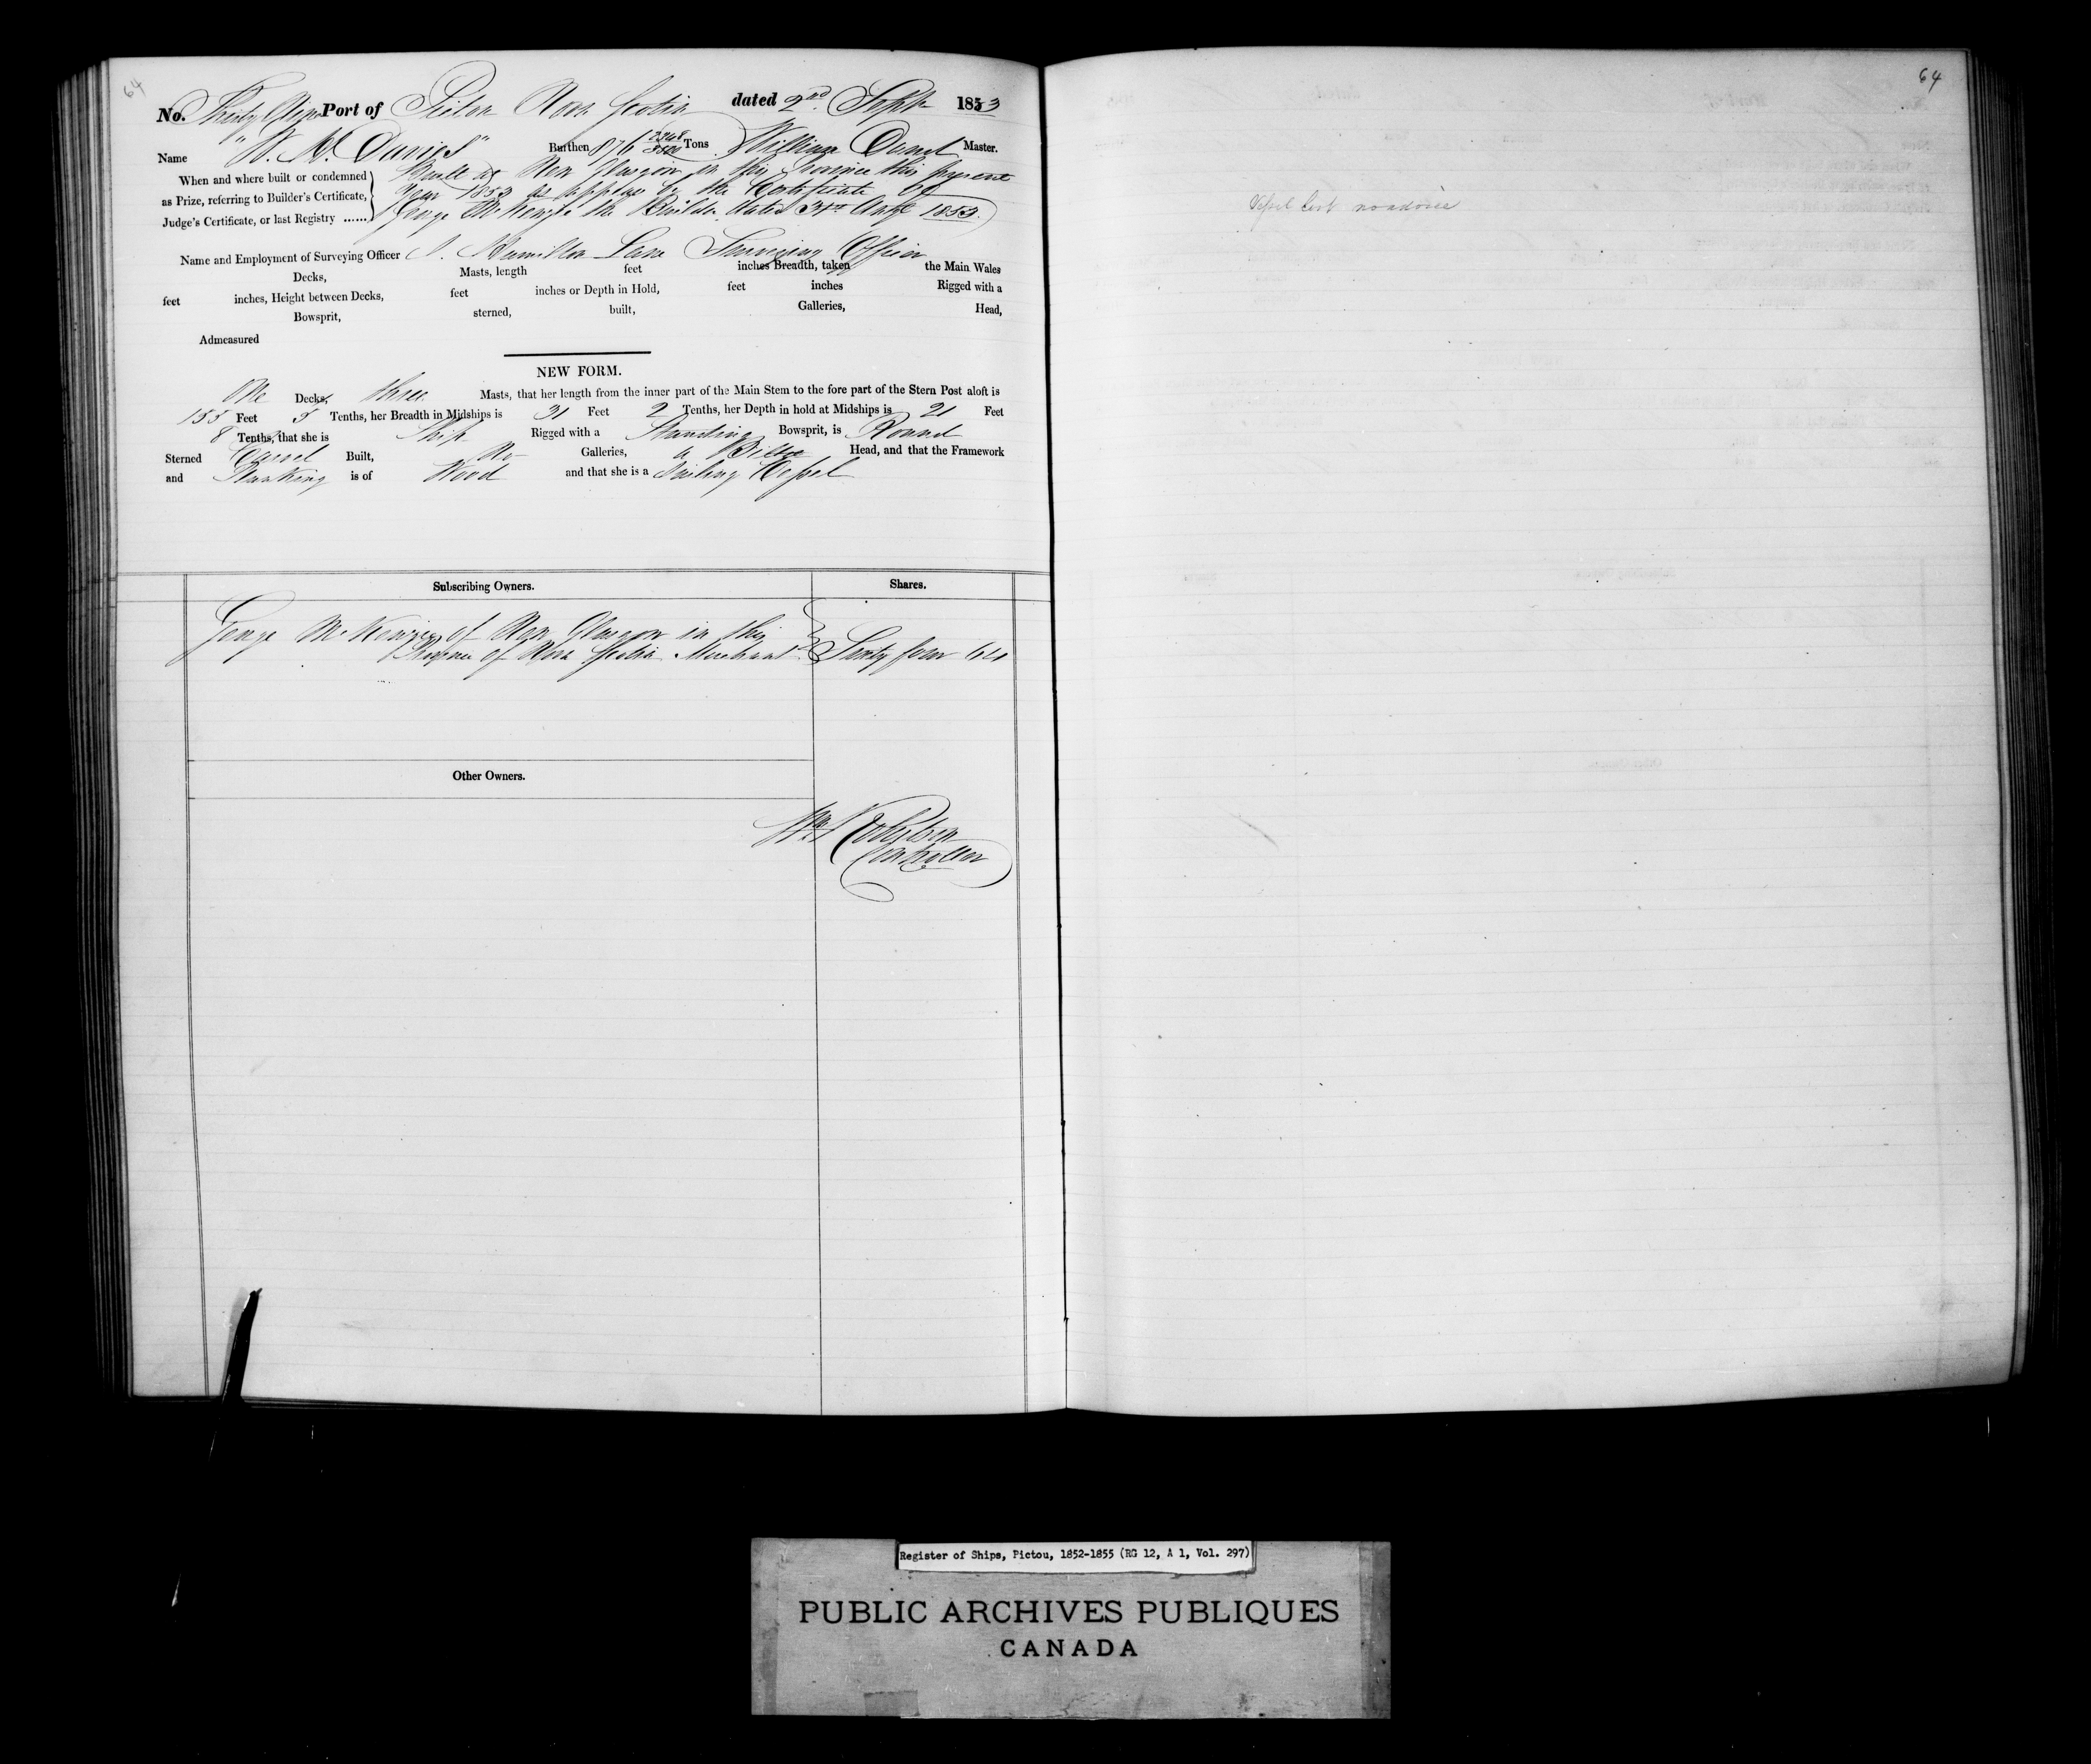 64
No. Thirty Nine Port of Pictou Nova Scotia dated 2nd Septr 1853
Name "W. H. Davies" Burthen 876 2348/3500 Tons William Master.
When and where built or condemned as Prize, referring to Builder's Certificate, Judge's Certificate, or last Registry ......
Built at New Glasgow in this Province this present
Year 1853 as appears by the Certificate of
George McKenzie the Builder dated 31st Augt 1853.
Name and Employment of Surveying Officer J. Hamilton Lane Surveying Officer
Decks, Masts, length feet inches Breadth, taken the Main Wales
feet inches, Height between Decks, feet inches or Depth in Hold, feet inches Rigged with a
Bowsprit, sterned, built, Galleries, Head,
Admeasured
NEW FORM.
One Decks, three Masts, that her length from the inner part of the Main Stem to the fore part of the Stern Post aloft is
155 Feet 5 Tenths, her Breadth in Midships is 31 Feet 2 Tenths, her Depth in hold at Midships is 21 Feet
8 Tenths, that she is Ship Rigged with a Standing Bowsprit, is Round
Sterned Carvel Built, No Galleries, a Billet Head, and that the Framework
and Planking is of Wood and that she is a Sailing Vessel
Subscribing Owners. Shares.
George McKenzie of New Glasgow in this
Province of Nova Scotia Merchant Sixty four 64
Other Owners.
Wm Robertson
Controller
64
Vessel lost no advice
Register of Ships, Pictou, 1852-1855 (RG 12, A 1, Vol. 297)
PUBLIC ARCHIVES PUBLIQUES
CANADA